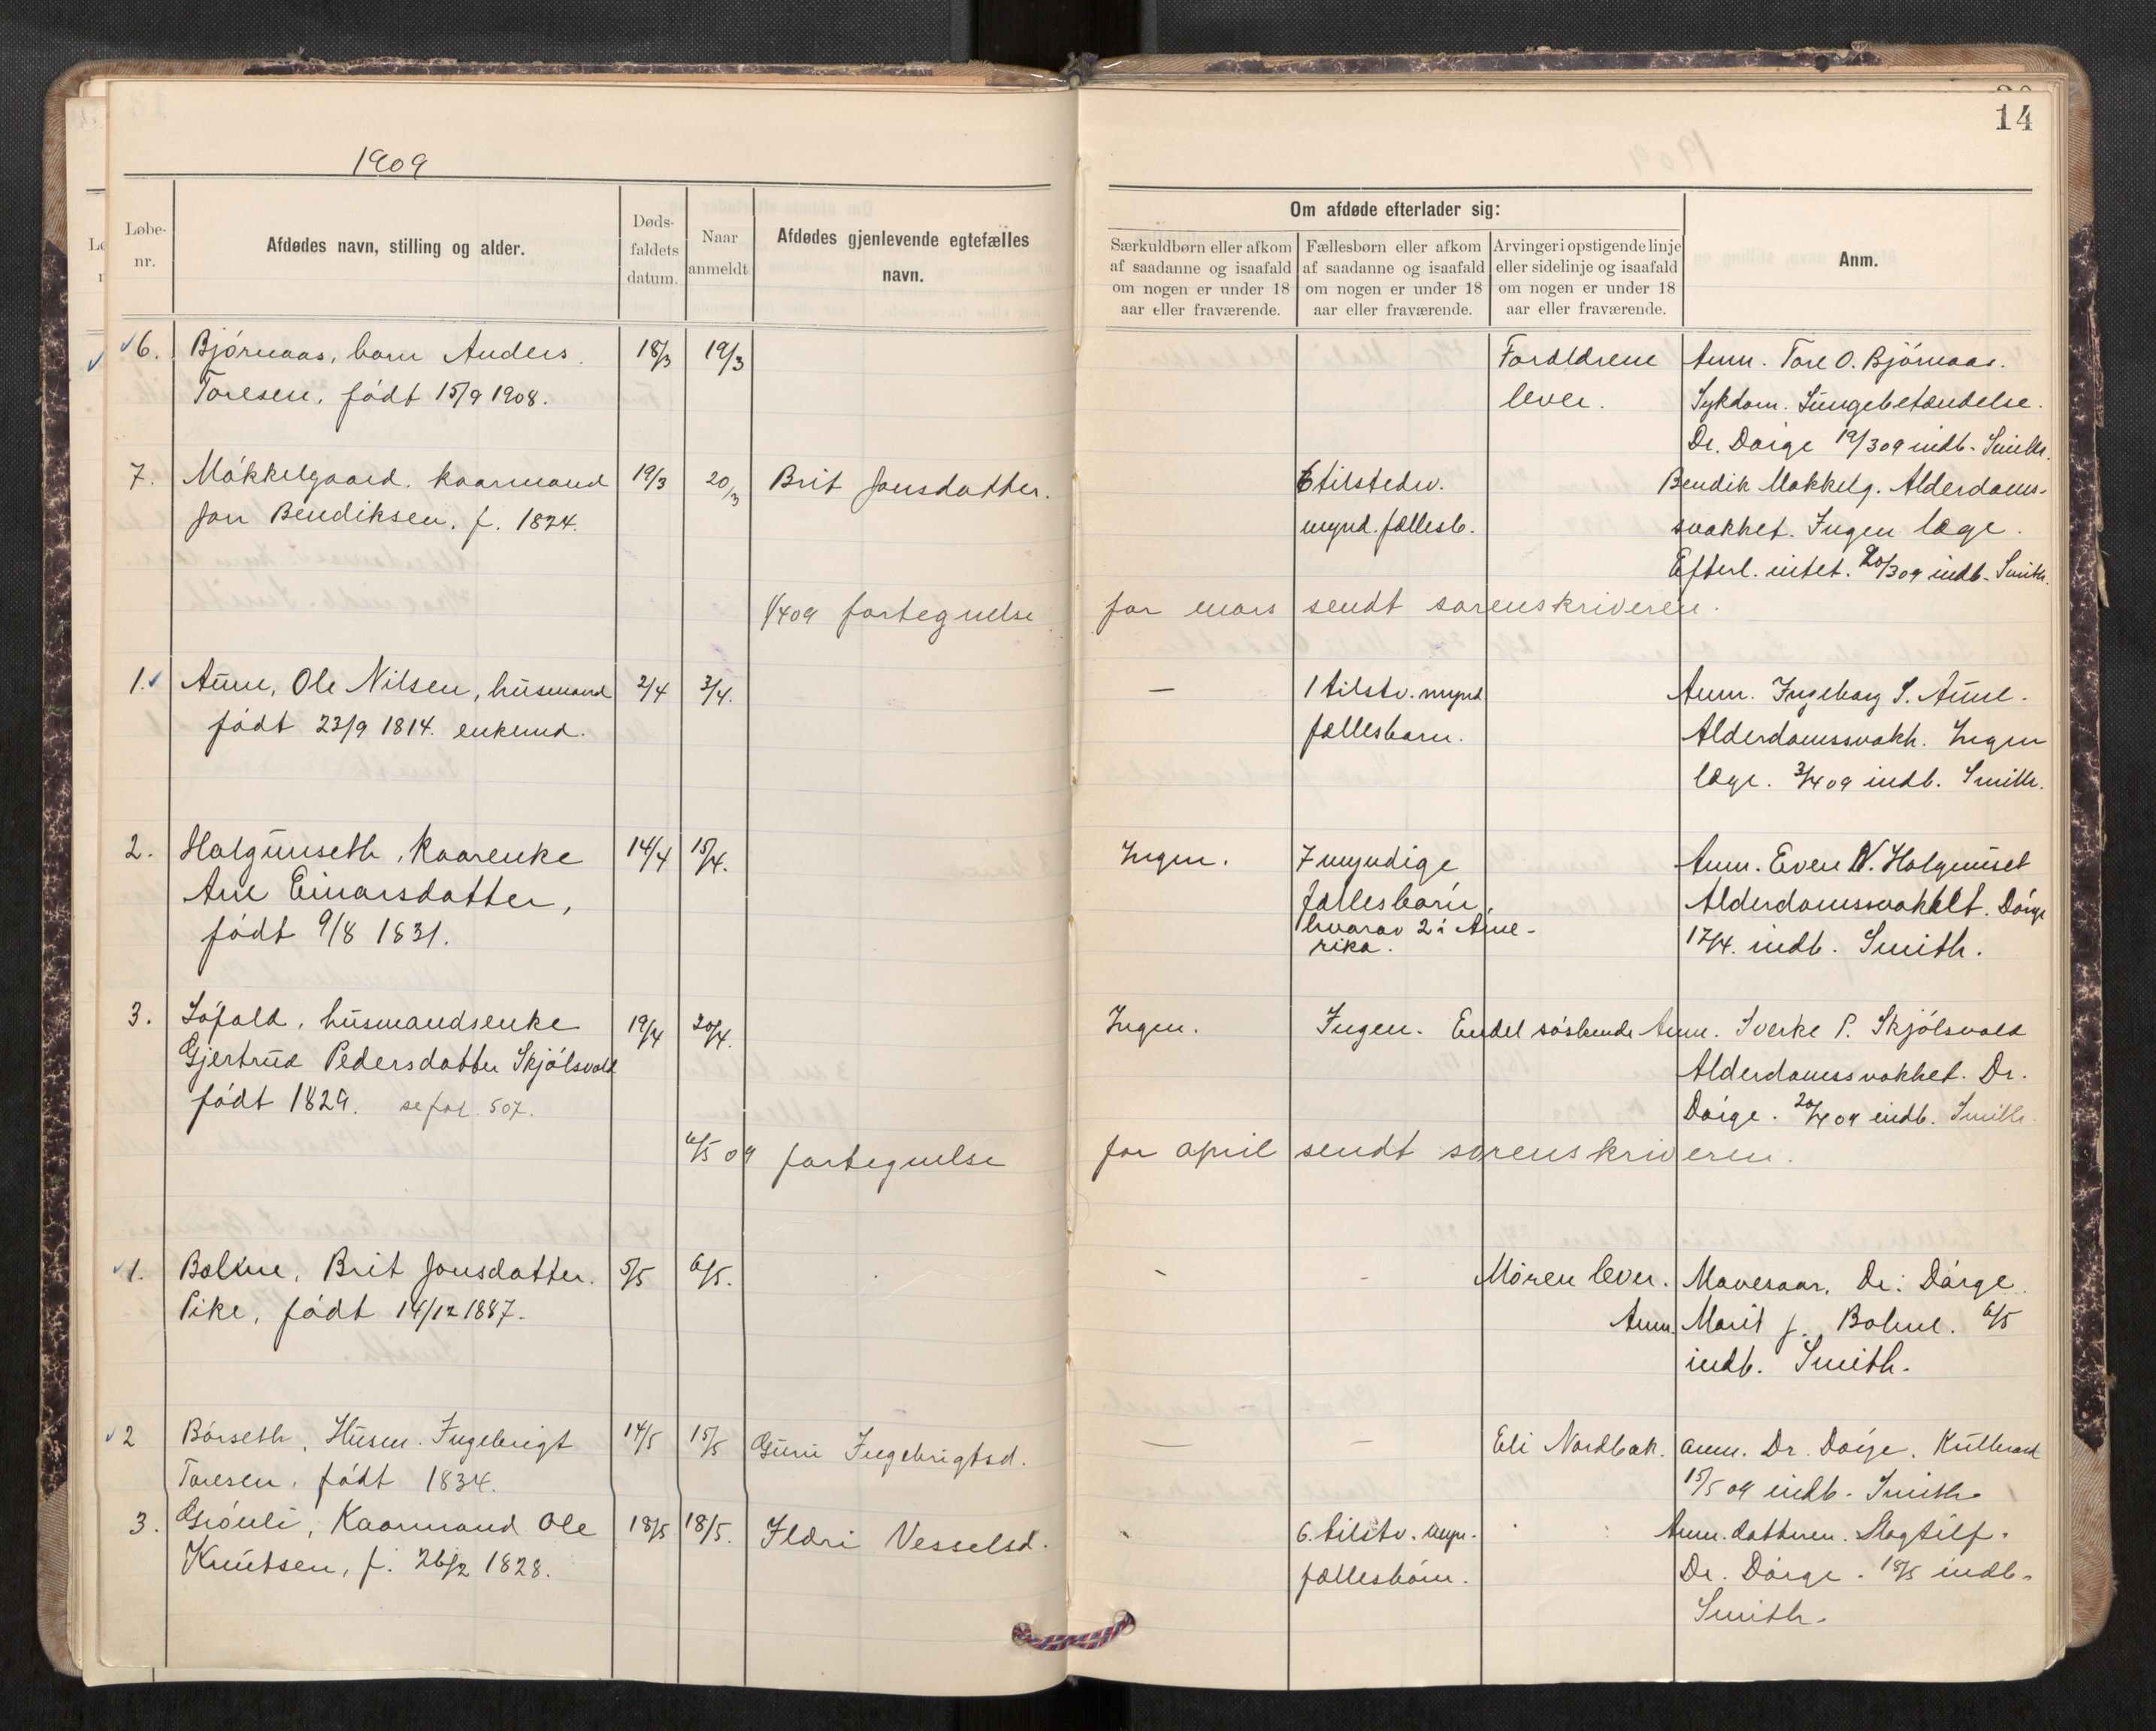 14
1909
Løbe-
nr.
Afdødes navn, stilling og alder.
Døds-
faldets
datum.
Naar
anmeldt
Afdødes gjenlevende egtefælles
navn.
Om afdøde efterlader sig:
Særkuldbørn eller afkom
af saadanne og isaafald
om nogen er under 18
aar eller fraværende.
Fællesbørn eller afkom
af saadanne og isaafald
om nogen er under 18
aar eller fraværende.
Arvinger i opstigende linje
eller sidelinje og isaafald
om nogen er under 18
aar eller fraværende.
Anm.
6. Bjørnaas, barn Anders
Toresen, født 15/9 1908.
18/3
19/3
Forældrene
lever.
Anm. Tore O. Bjørnaas.
Sykdom. Lungebetændelse.
Dr. Dørge 19/3 09 indb. Smith.
7. Møkkelgaard, kaarmand
Jon Bendiksen, f. 1824.
19/3
20/3
Brit Jonsdatter.
6 tilstedv.
mynd. fællesb.
Bendik Møkkelg. Alderdoms-
svakhet. Ingen læge.
Efterl. intet. 20/3 09 indb. Smith.
1/4 09 fortegnelse for mars sendt sorenskriveren.
1. Aune, Ole Nilsen, husmand
født 23/9 1814. enkemd.
2/4
3/4.
—
1 tilstv. mynd
fællesbarn.
Anm. Ingeborg S. Aune.
Alderdomssvakh. Ingen
læge. 3/4 09 indb. Smith.
2. Halgunseth, Kaarenke
Ane Einarsdatter,
født 9/8 1831.
14/4
15/4.
Ingen.
7 myndige
fællesbørn,
hvorav 2 i Ame-
rika.
Anm. Even N. Halgunset
Alderdomssvakhet. Dørge
17/4. indb. Smith.
3. Løfald, husmandsenke
Gjertrud Pedersdatter Skjølsvold
født 1829. se fol. 507.
19/4
20/4.
Ingen.
Ingen.
Endel søskende
Anm. Sverke P. Skjølsvold
Alderdomssvakhet. Dr.
Dørge. 20/4 09 indb. Smith.
6/5 09 fortegnelse for april sendt sorenskriveren.
1. Bolme, Brit Jonsdatter.
Pike, født 14/12 1887.
5/5
6/5.
-
-
Moren lever.
Mavesaar. Dr. Dørge.
Anm. Marit J. Bolme. 6/5
indb. Smith.
2 Børseth, Husm. Ingebrigt
Toresen, født 1834.
14/5
15/5
Guru Ingebrigtsd.
—
—
Eli Nordbak.
anm. Dr. Dørge. Kulbrand
15/5 09 indb. Smith.
3. Grønli, Kaarmand Ole
Knutsen, f. 26/2 1828.
18/5
18/5.
Ildri Vesselsd.
6. tilstv. myn.
fællesbørn.
Anm. datteren. Slagtilf.
Dr. Dørge. 18/5 indb.
Smith.